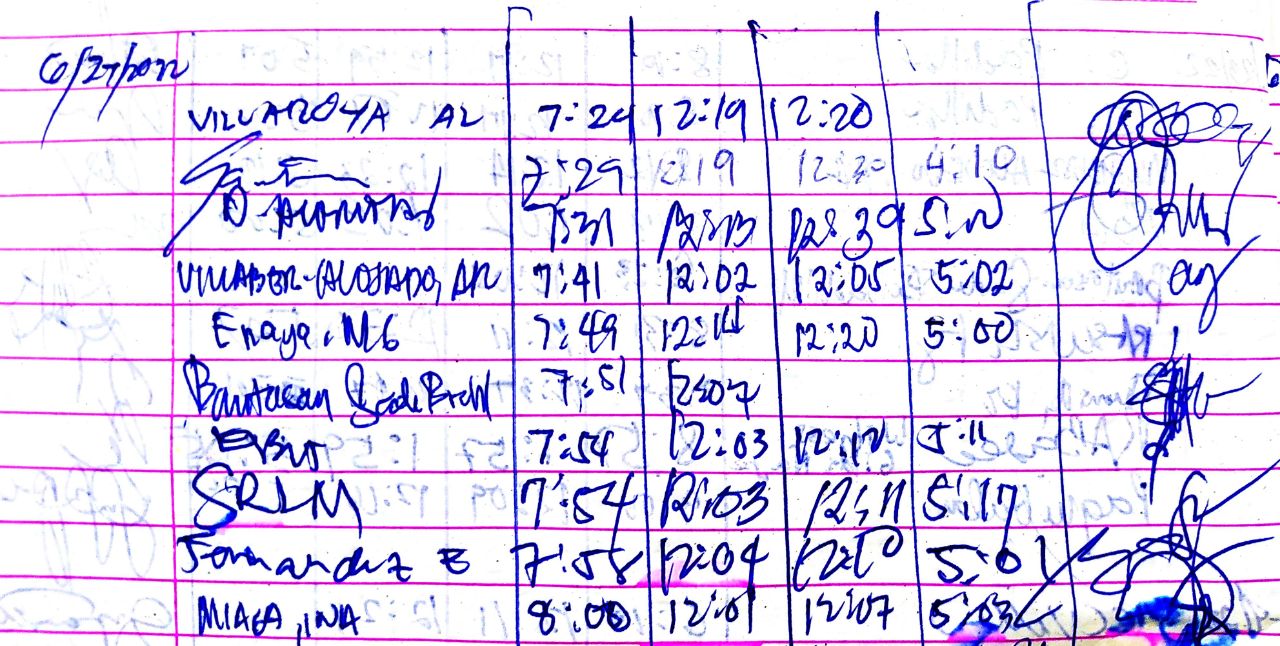 6/27/2022
VILLAROYA AL 7:24 12:19 12:20
7:29 12:19 12:20 4:10
7:31 12:13 12:39
VILLABER-ALOJADO, AR 7:41 12:02 12:05 5:02
Enaje, MG 7:49 12:14 12:20 5:00
Bantasan 7:51 12:07
7:54 12:03 12:12 5:11
SRLM 7:54 12:03 12:11 5:17
Fernandez E 7:58 12:04 12:10 5:01
MIAGA, INA 8:00 12:01 12:07 5:03